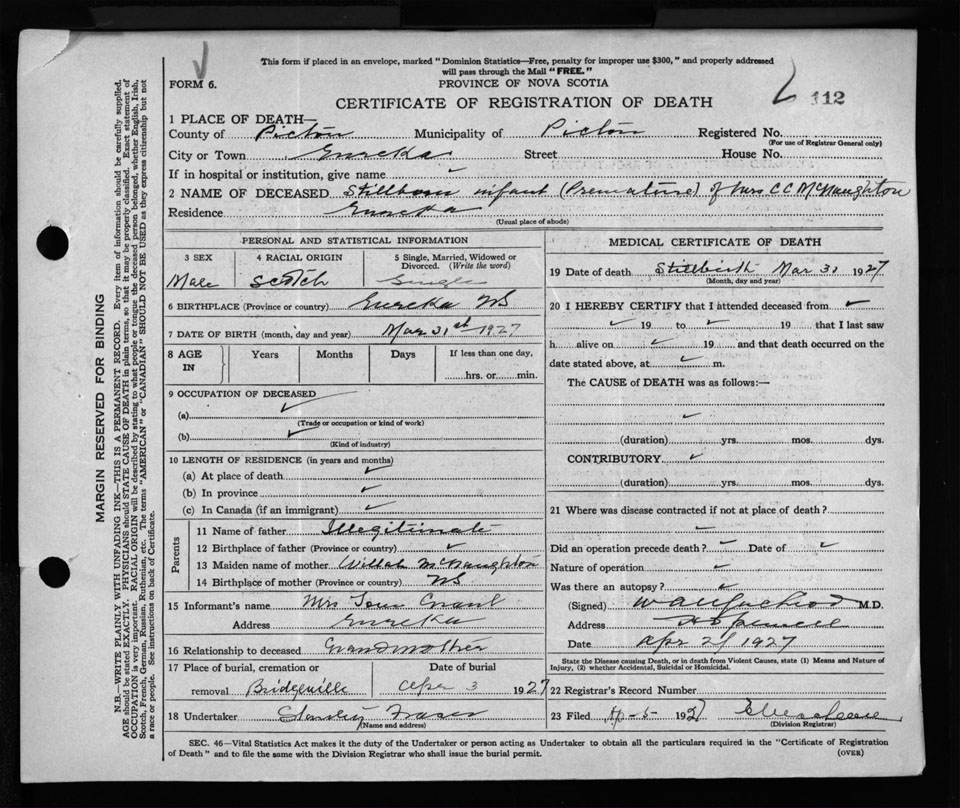 This form if placed in an envelope, marked "Dominion Statistics—Free, penalty for improper use $300," and properly addressed
will pass through the Mail "FREE."
FORM 6.
PROVINCE OF NOVA SCOTIA
112
CERTIFICATE OF REGISTRATION OF DEATH
1 PLACE OF DEATH—
County of Pictou Municipality of Pictou Registered No.
(For use of Registrar General only)
City or Town Eureka Street House No.
If in hospital or institution, give name
2 NAME OF DECEASED Stillborn infant (Premature) of Mrs C C McNaughton
Residence Eureka
(Usual place of abode)
PERSONAL AND STATISTICAL INFORMATION
3 SEX 4 RACIAL ORIGIN 5 Single, Married, Widowed or
Divorced. (Write the word)
Male Scotch Single
6 BIRTHPLACE (Province or country) Eureka NS
7 DATE OF BIRTH (month, day and year) Mar 31st 1927
8 AGE Years Months Days If less than one day,
IN hrs. or min.
9 OCCUPATION OF DECEASED
(a)
(Trade or occupation or kind of work)
(b)
(Kind of industry)
10 LENGTH OF RESIDENCE (in years and months)
(a) At place of death
(b) In province
(c) In Canada (if an immigrant)
Parents
11 Name of father Illegitimate
12 Birthplace of father (Province or country)
13 Maiden name of mother McNaughton
14 Birthplace of mother (Province or country) NS
15 Informant's name Mrs Grant
Address Eureka
16 Relationship to deceased Grandmother
17 Place of burial, cremation or Date of burial
removal Bridgeville Apr 3 1927
18 Undertaker Stanley Fraser
(Name and address)
MEDICAL CERTIFICATE OF DEATH
19 Date of death Stillbirth Mar 31 1927
(Month, day and year)
20 I HEREBY CERTIFY that I attended deceased from
19 to 19 that I last saw
h alive on 19 and that death occurred on the
date stated above, at m.
The CAUSE of DEATH was as follows:—
(duration) yrs. mos. dys.
CONTRIBUTORY
(duration) yrs. mos. dys.
21 Where was disease contracted if not at place of death?
Did an operation precede death? Date of
Nature of operation
Was there an autopsy?
(Signed) M.D.
Address Hopewell
Date Apr 2/ 1927
State the Disease causing Death, or in death from Violent Causes, state (1) Means and Nature of
Injury, (2) whether Accidental, Suicidal or Homicidal.
22 Registrar's Record Number
23 Filed Ap-5- 1927
(Division Registrar)
SEC. 46—Vital Statistics Act makes it the duty of the Undertaker or person acting as Undertaker to obtain all the particulars required in the "Certificate of Registration
of Death" and to file the same with the Division Registrar who shall issue the burial permit. (OVER)
MARGIN RESERVED FOR BINDING
N.B.—WRITE PLAINLY WITH UNFADING INK—THIS IS A PERMANENT RECORD. Every item of information should be carefully supplied.
AGE should be stated EXACTLY. PHYSICIANS should STATE CAUSE OF DEATH in plain terms, so that it may be properly classified. Exact statement of
OCCUPATION is very important. RACIAL ORIGIN will be described by stating to what people or tongue the deceased person belonged, whether English, Irish,
Scotch, French, German, Russian, Ruthenian, etc. The terms "AMERICAN" or "CANADIAN" SHOULD NOT BE USED as they express citizenship but not
a race or people. See instructions on back of Certificate.